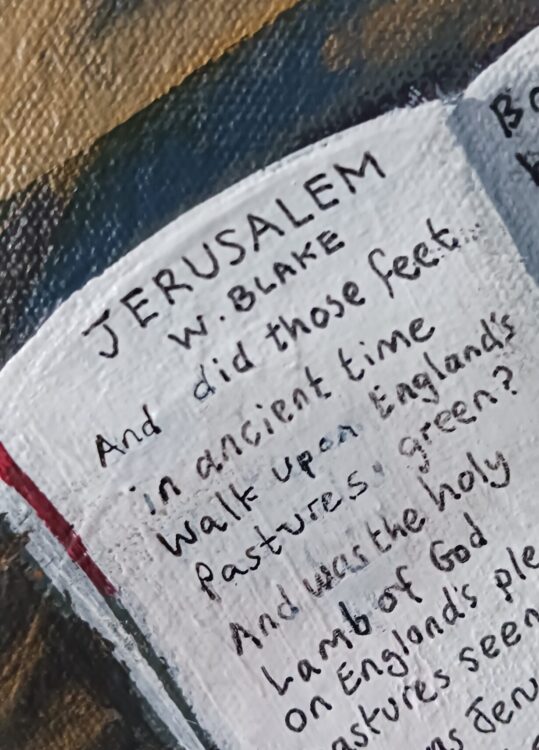 JERUSALEM
W. BLAKE
And did those feet...
in ancient time
Walk upon England's
Pastures green?
And was the holy
Lamb of God
on England's ple
astures seen
Jeru
Bo